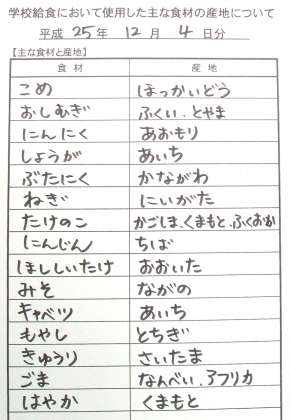 学校給食において使用した主な食材の産地について
平成 25 年 12 月 4 日分
【主な食材と産地】
食材 産地
こめ ほっかいどう
おしむぎ ふくい、とやま
にんにく あおもり
しょうが あいち
ぶたにく かながわ
ねぎ にいがた
たけのこ かごしま、くまもと、ふくおか
にんじん ちば
ほししいたけ おおいた
みそ ながの
キャベツ あいち
もやし とちぎ
きゅうり さいたま
ごま なんべい、アフリカ
はやか くまもと